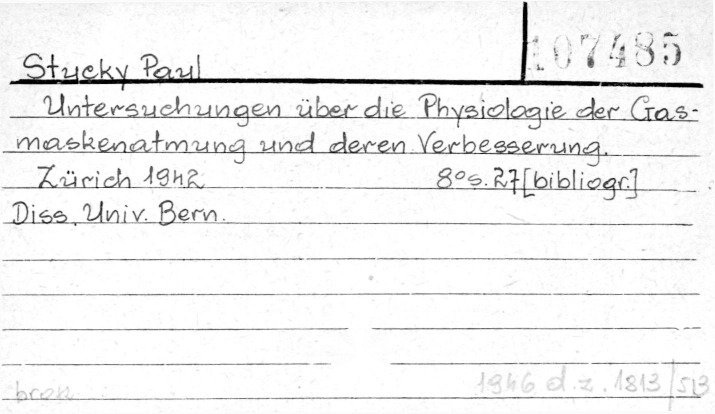 107485
Stucky Paul
Untersuchungen über die Physiologie der Gas-
maskenatmung und deren Verbesserung.
Zürich 1942 8° s. 27 [bibliogr.]
Diss. Univ. Bern.
1946 d. z. 1813/513
brosz